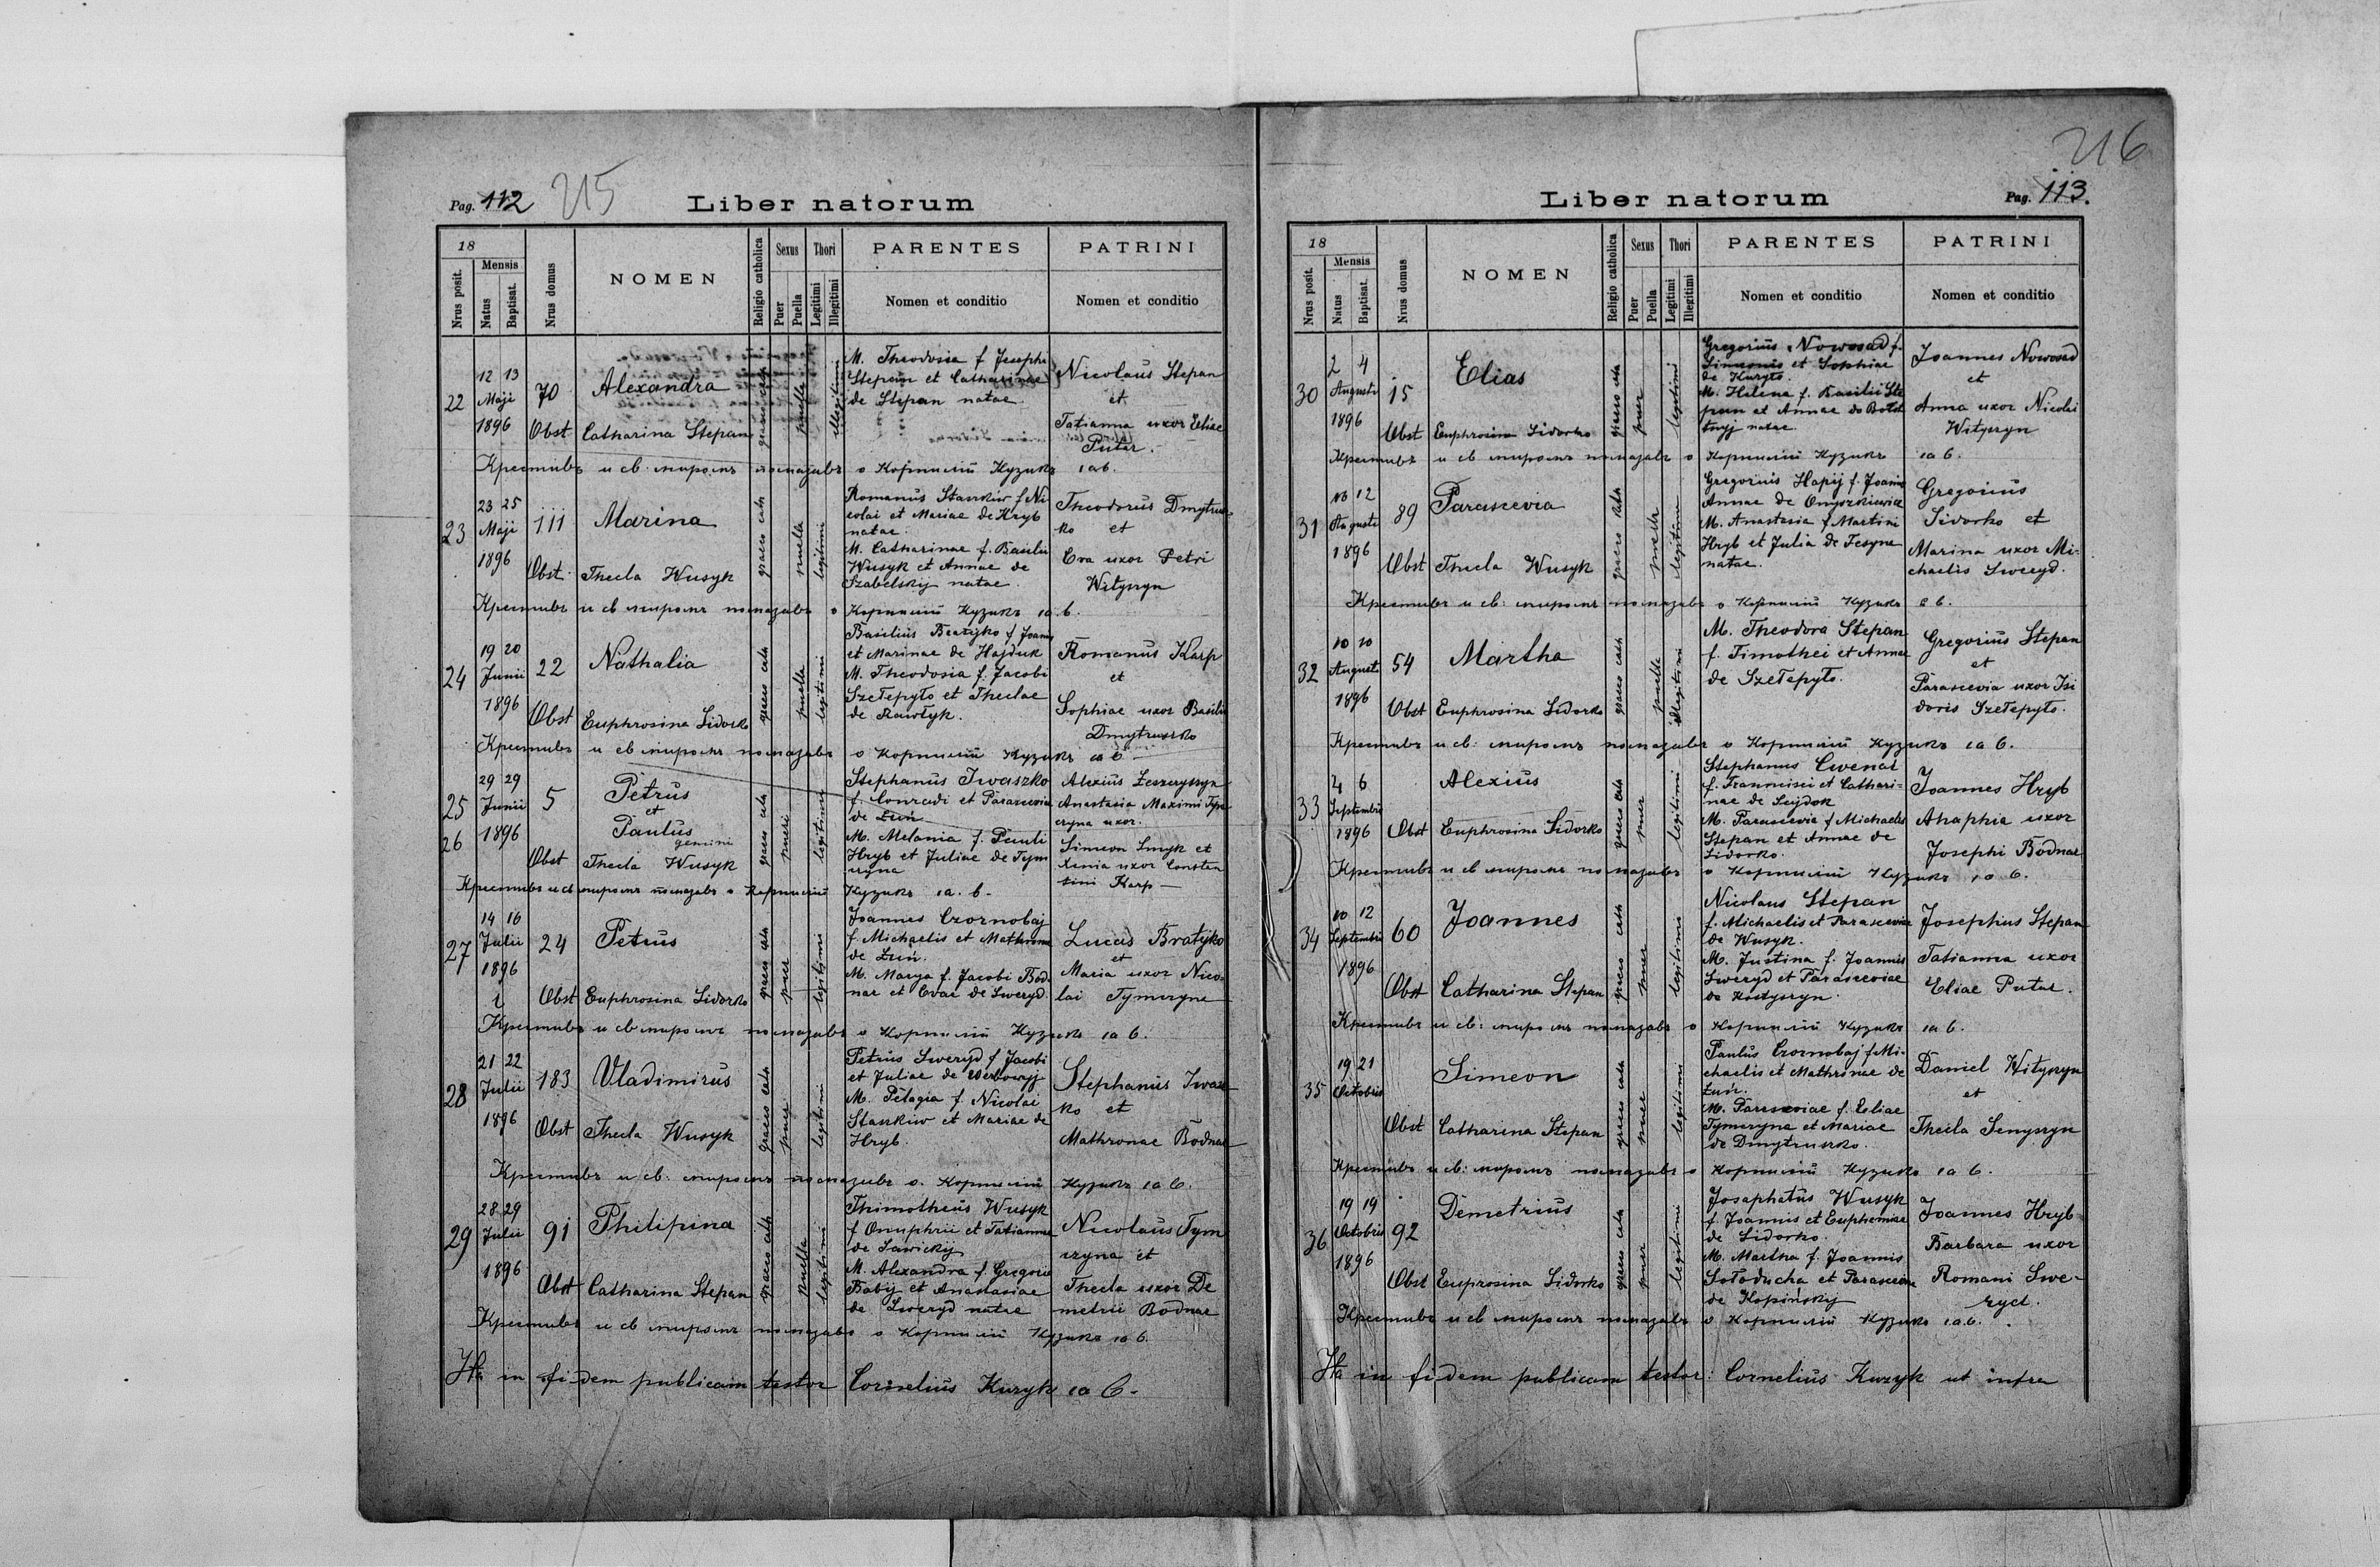 Pag. 112 215
Liber natorum
18
Mensis
Nrus posit.
Natus
Baptisat.
Nrus domus
NOMEN
Religio catholica
Sexus
Puer
Puella
Thori
Legitimi
Illegitimi
PARENTES
Nomen et conditio
PATRINI
Nomen et conditio
22
12 13
Maji
1896
70
Alexandra
Obst Catharina Stepan
puella
illegitimi
M. Theodosia f Josephi
Stepan et Catharinae
de Stepan natae
Nicolaus Stepan
et
Tatianna uxor Eliae
Putar.
23
23 25
Maji
1896
111
Marina
Obst. Thecla Wusyk
graeco cath
puella
legitimi
Romanus Stankiw f Ni
colai et Mariae de Hryb
natae.
M. Catharinae f. Basilii
Wusyk et Annae de
Szabelskij natae.
Theodorus Dmytrus
ko et
Eva uxor Petri
Witysyn
24
19 20
Junii
1896
22
Nathalia
Obst Euphrosina Sidorko
graeco cath
puella
legitimi
Basilius Bratijko f Joannis
et Marinae de Hajduk
M. Theodosia f. Jacobi
Szełepyło et Theclae
de Rawłyk.
Romanus Karp
et
Sophiae uxor Basilii
Dmytrusko
25
26
29 29
Junii
1896
5
Petrus
et
Paulus
gemini
Obst Thecla Wusyk
graeco cath
pueri
legitimi
Stephanus Iwaszko
f. Conradi et Parascevia
de Łuń
M. Melania f. Pauli
Hryb et Juliae de Tym
czyna
Anastasia Maximi Tym
czyna uxor.
Simeon Smyk et
Xenia uxor Constan
tini Karp
27
14 16
Julii
1896
24
Petrus
Obst Euphrosina Sidorko
graeco cath
puer
legitimi
Joannes Czornobaj
f. Michaelis et Mathrona
de Łuń.
M. Marya f. Jacobi Bod
nar et Evae de Sweryd.
Lucas Bratijko
et
Maria uxor Nico
lai Tymczyna
28
21 22
Julii
1896
183
Vladimirus
Obst Thecla Wusyk
graeco cath
puer
legitimi
Petrus Sweryd f Jacobi
et Juliae de Werbowyj
M. Pelagia f. Nicolai
Stankiw et Mariae de
Hryb.
Stephanus Iwasz
ko et
Mathronae Bodnar
29
28 29
Julii
1896
91
Philipina
Obst Catharina Stepan
graeco cath
puella
legitimi
Thimotheus Wusyk
f Onuphrii et Tatiannae
de Sawickij
M. Alexandra f. Gregorii
Babij et Anastasiae
de Sweryd natae
Nicolaus Tym
czyna et
Thecla uxor De
metrii Bodnar
Ita in fidem publicam testor Cornelius Kuzyk
216
Liber natorum
Pag. 113.
18
Mensis
Nrus posit.
Natus
Baptisat.
Nrus domus
NOMEN
Religio catholica
Sexus
Puer
Puella
Thori
Legitimi
Illegitimi
PARENTES
Nomen et conditio
PATRINI
Nomen et conditio
30
2 4
Augusti
1896
15
Elias
Obst Euphrosina Sidorko
graeco cath
puer
legitimi
Gregorius Nowosad f.
Simeonis et Sophiae
de Kuryło.
M. Helena f. Basilii Ste
pan et Annae
natae.
Joannes Nowosad
et
Anna uxor Nicolai
Witysyn
31
10 12
Augusti
1896
89
Parascevia
Obst Thecla Wusyk
graeco cath
puella
legitimi
Gregorius Hapij f. Joannis
Annae de
M. Anastasia f Martini
Hryb et Julia de Fesyna
natae.
Gregorius
Sidorko et
Marina uxor Mi-
chaelis Sweryd.
32
10 10
Augusti
1896
54
Martha
Obst Euphrosina Sidorko
graeco cath
puella
illegitimi
M. Theodora Stepan
f. Timothei et Annae
de Szełepyło.
Gregorius Stepan
et
Parascevia uxor Isi
doris Szełepyło.
33
4 6
Septembris
1896
Alexius
Obst Euphrosina Sidorko
graeco cath
puer
legitimi
Stephanus Cwenar
f. Francisci et Cathari-
nae de Sejdok
M. Parascevia f Michaelis
Stepan et Annae de
Sidorko.
Joannes Hryb
Ahaphia uxor
Josephi Bodnar
34
10 12
Septembris
1896
60
Joannes
Obst Catharina Stepan
graeco cath
puer
legitimi
Nicolaus Stepan
f. Michaelis et Parasceviae
de Wusyk.
M. Justina f. Joannis
Sweryd et Parasceviae
Josephus Stepan
Tatianna uxor
Eliae Putar.
35
19 21
Octobris
Simeon
Obst Catharina Stepan
graeco cath
puer
legitimi
Paulus Czornobaj f Mi-
chaelis et Mathronae de
Łuń.
M. Parasceviae f. Eeliae
Tymczyna et Mariae
de Dmytrusko.
Daniel Witysyn
et
Thecla Senysyn
36
19 19
Octobris
1896
92
Demetrius
Obst Euprosina Sidorko
graeco cath
puer
legitimi
Josaphatus Wusyk
f. Joannis et Euphemiae
de Sidorko.
M. Martha f. Joannis
Sołoducha et Parascevia
de Kopińskij
Joannes Hryb
Barbara uxor
Romani Swe-
ryd.
Ita in fidem publicam testor: Cornelius Kuzyk ut infra